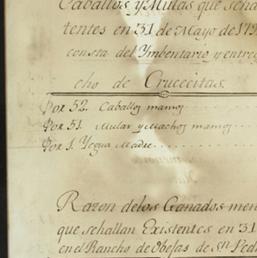 Caballos, y Mulas que seha
tentes en 31 de Mayo de 179
consta del Ymbentario y entre
cho de Crucecitas.
Por 52. Caballos mansos
Por 51. Mular y Machos mansos
Por 1. Yegua Madre
Razon delos Ganados men
que sehallan Existentes en 31
en el Rancho de Obejas de Sn Ped